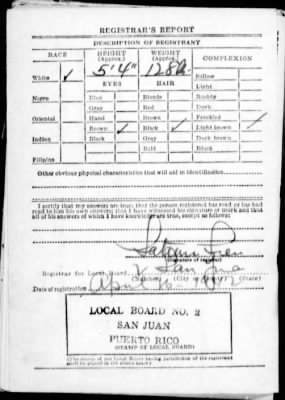 REGISTRAR'S REPORT
DESCRIPTION OF REGISTRANT
RACE HEIGHT (Approx.) WEIGHT (Approx.) COMPLEXION
5' 4"
White ✓ Sallow
EYES HAIR Light
Negro Blue Blonde Ruddy
Gray Red Dark
Oriental Hazel Brown Freckled
Brown ✓ Black ✓ Light brown ✓
Indian Black Gray Dark brown
Bald Black
Filipino
Other obvious physical characteristics that will aid in identification
I certify that my answers are true; that the person registered has read or has had
read to him his own answers; that I have witnessed his signature or mark and that
all of his answers of which I have knowledge are true, except as follows:
(Signature of registrar)
Registrar for Local Board 2 San Juan
(Number) (City or county) (State)
Date of registration
LOCAL BOARD NO. 2
SAN JUAN
PUERTO RICO
(STAMP OF LOCAL BOARD)
(The stamp of the Local Board having jurisdiction of the registrant
shall be placed in the above space.)